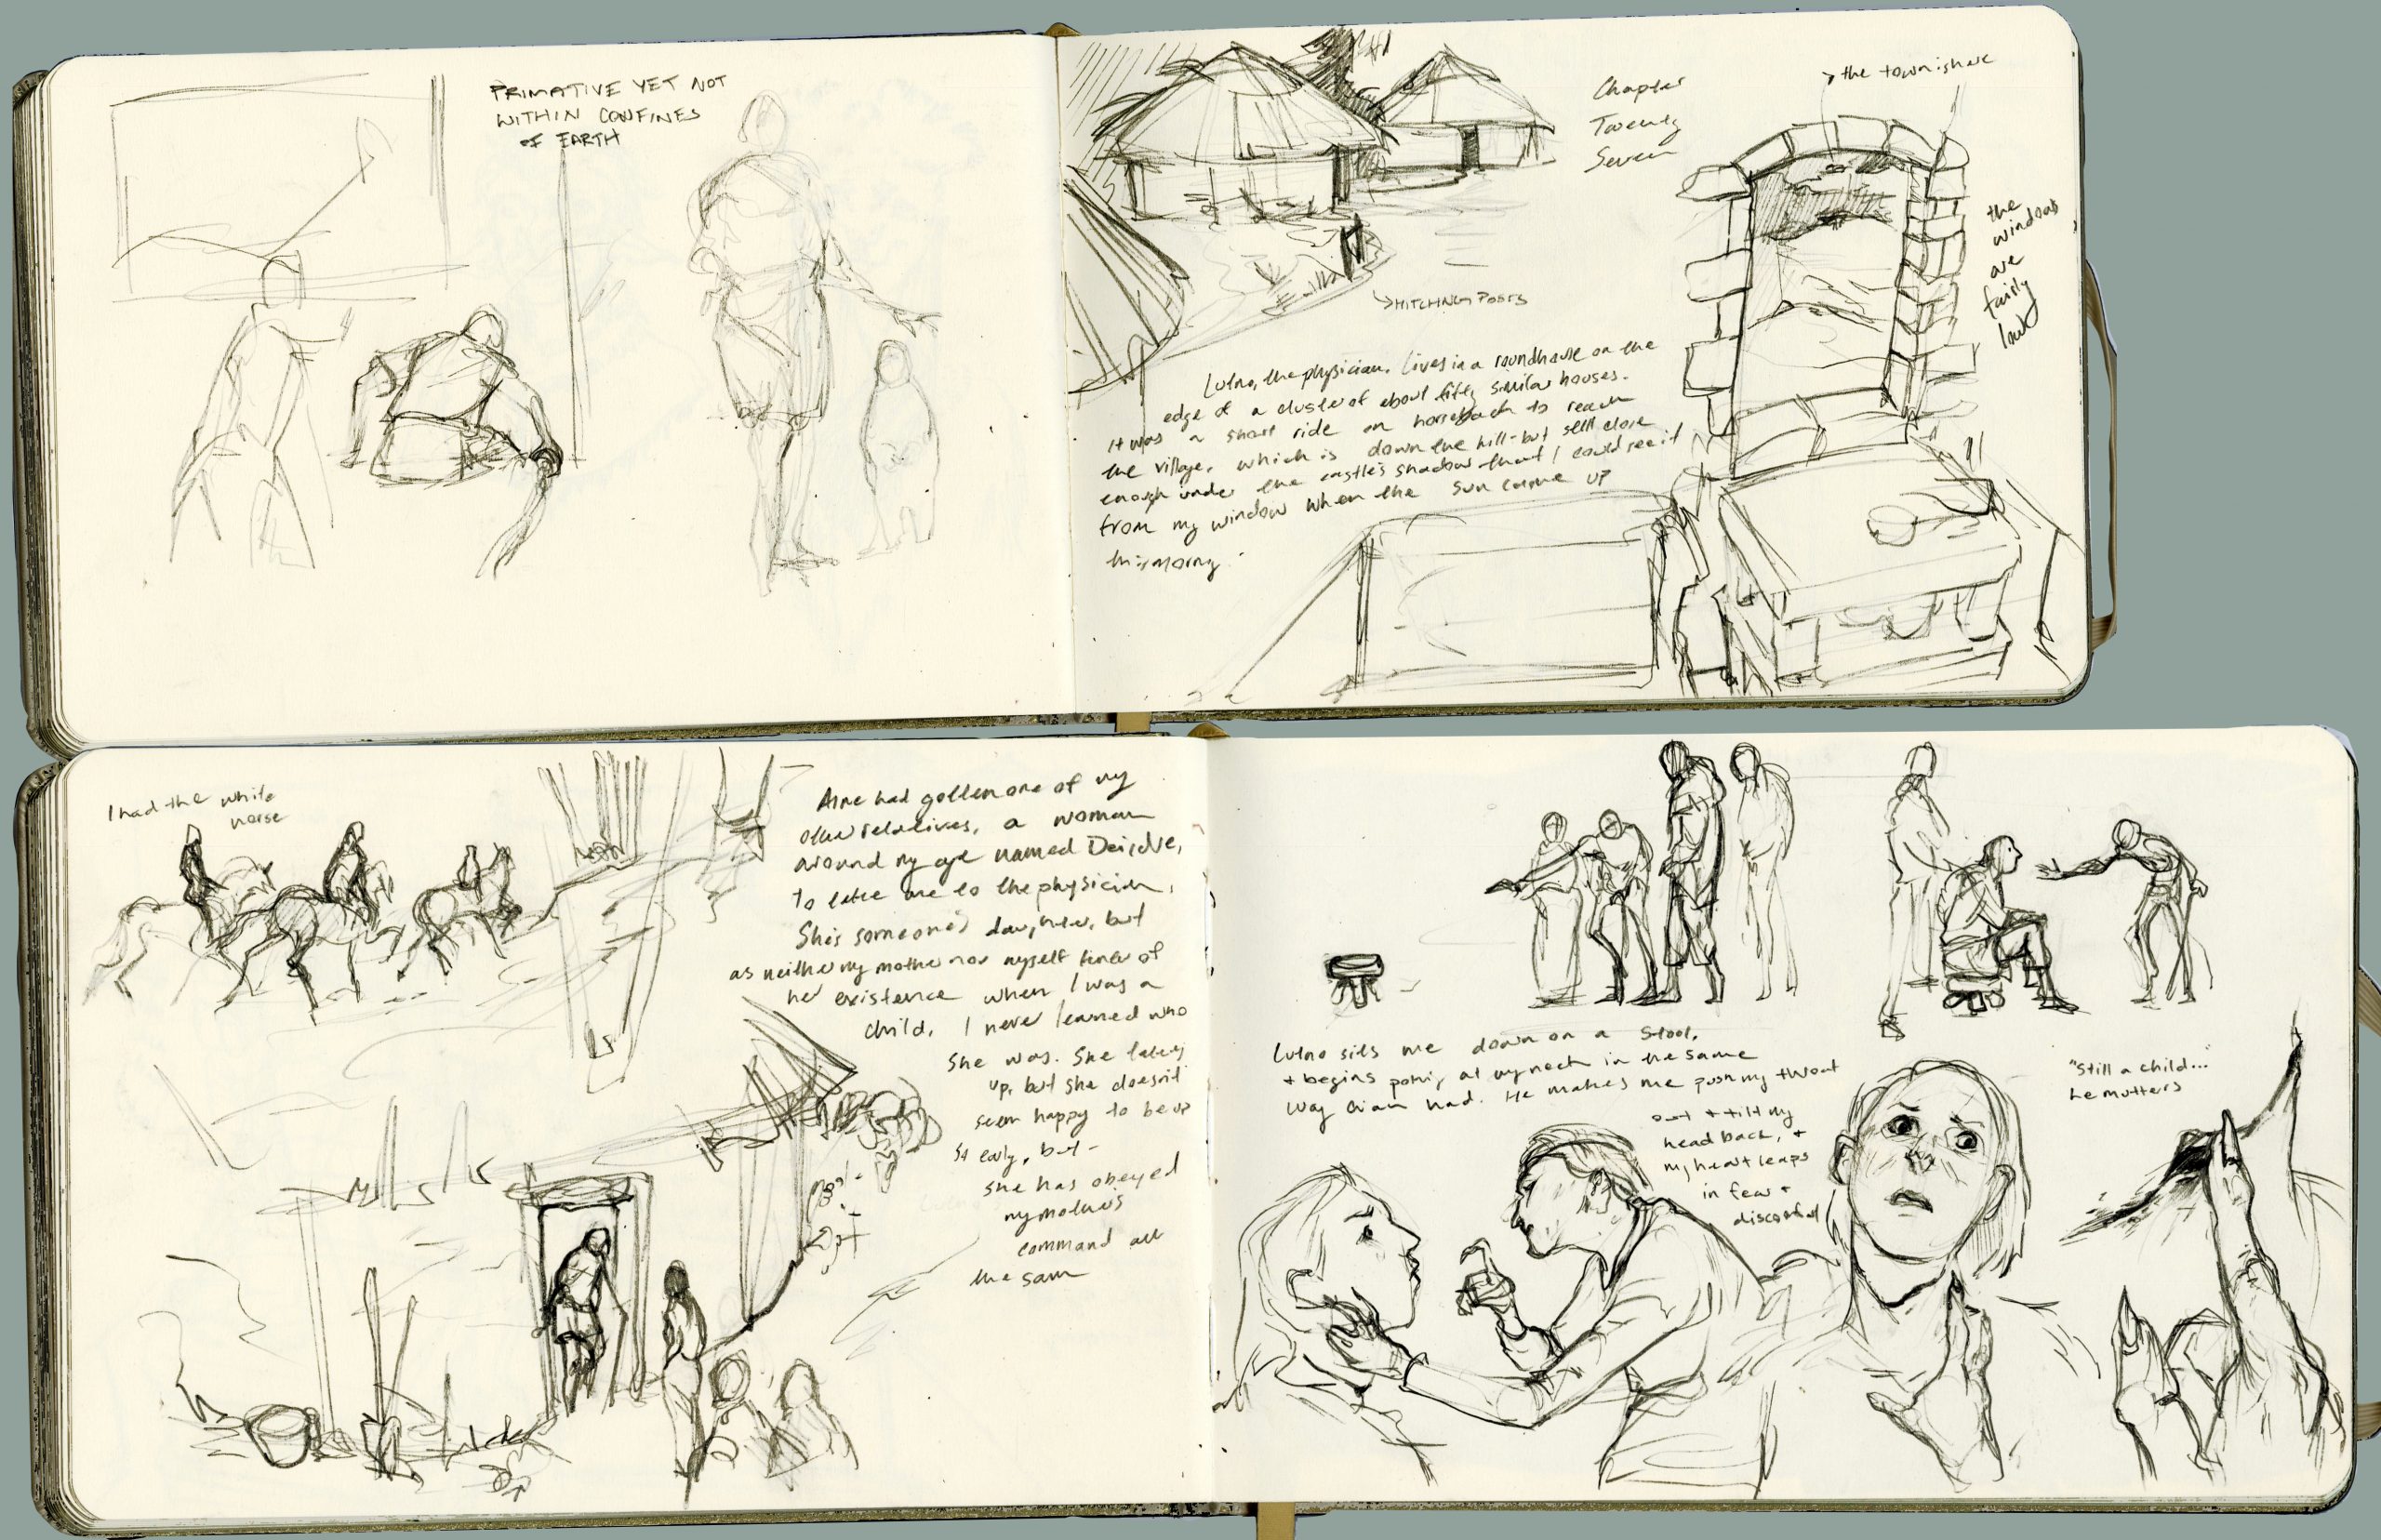 PRIMATIVE YET NOT
WITHIN CONFINES
OF EARTH
Chapter
Twenty
Seven
the town is here
the
windows
are
fairly
low
HITCHING POSTS
Lutno, the physician, lives in a roundhouse on the
edge of a cluster of about fifty similar houses.
It was a short ride on horseback to reach
the village, which is down the hill - but still close
enough under the castle's shadow that I could see it
from my window when the sun came up
this morning.
I had the white
horse
Aine had gotten one of my
other relatives, a woman
around my age named Deirdre,
to take me to the physician.
She's someone's daughter, but
as neither my mother nor myself knew of
her existence when I was a
child, I never learned who
she was. She
up, but she doesn't
seem happy to be up
so early, but -
she has obeyed
my mother's
command all
the same
Lutno sits me down on a stool,
+ begins at my neck in the same
way had. He makes me push my throat
out + tilt my
head back, +
my heart leaps
in fear +
discomfort
"Still a child..."
he mutters